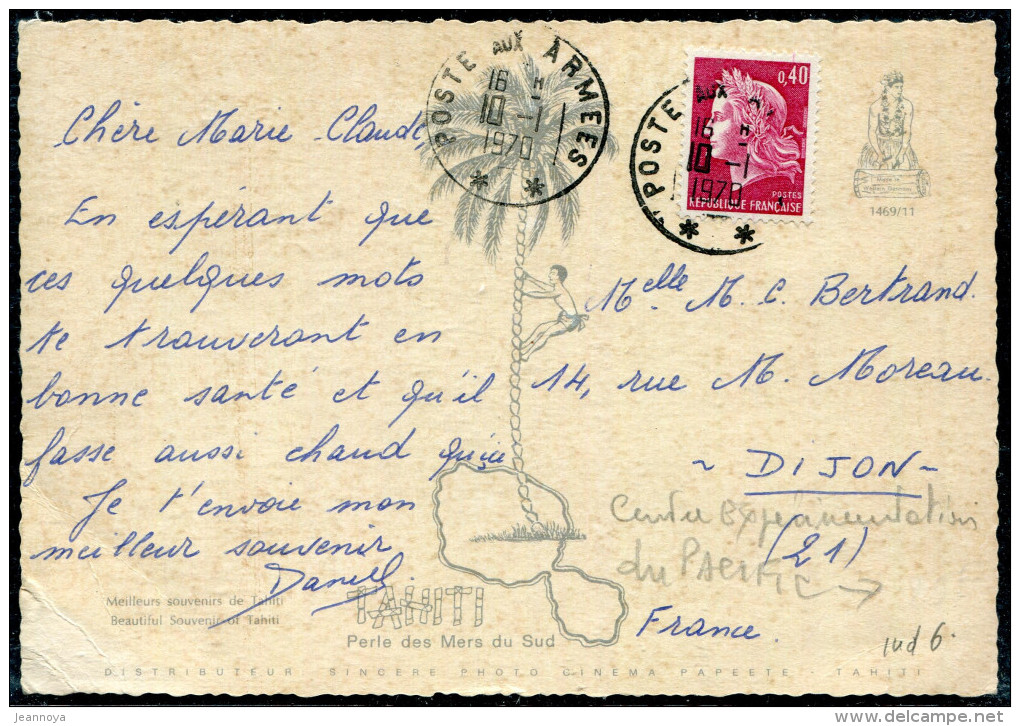 POSTE AUX ARMEES
16 H
10 - 1
1970
POSTE AUX
16 H
10 - 1
1970
0,40
POSTES
REPUBLIQUE FRANÇAISE
1469/11
Chère Marie-Claude,
En espérant que
ces quelques mots
te trouveront en
bonne santé et qu'il
fasse aussi chaud qu'ici
Je t'envoie mon
meilleur souvenir
Daniel.
Melle M. C. Bertrand.
14, rue M. Moreau.
~ DIJON ~
(21)
France.
Centre Experimentation
du Pacific →
ind 6.
Meilleurs souvenirs de Tahiti
Beautiful Souvenir of Tahiti
TAHITI
Perle des Mers du Sud
DISTRIBUTEUR SINCERE PHOTO CINEMA PAPEETE - TAHITI
Copyright : jeannoya
delcampe.net